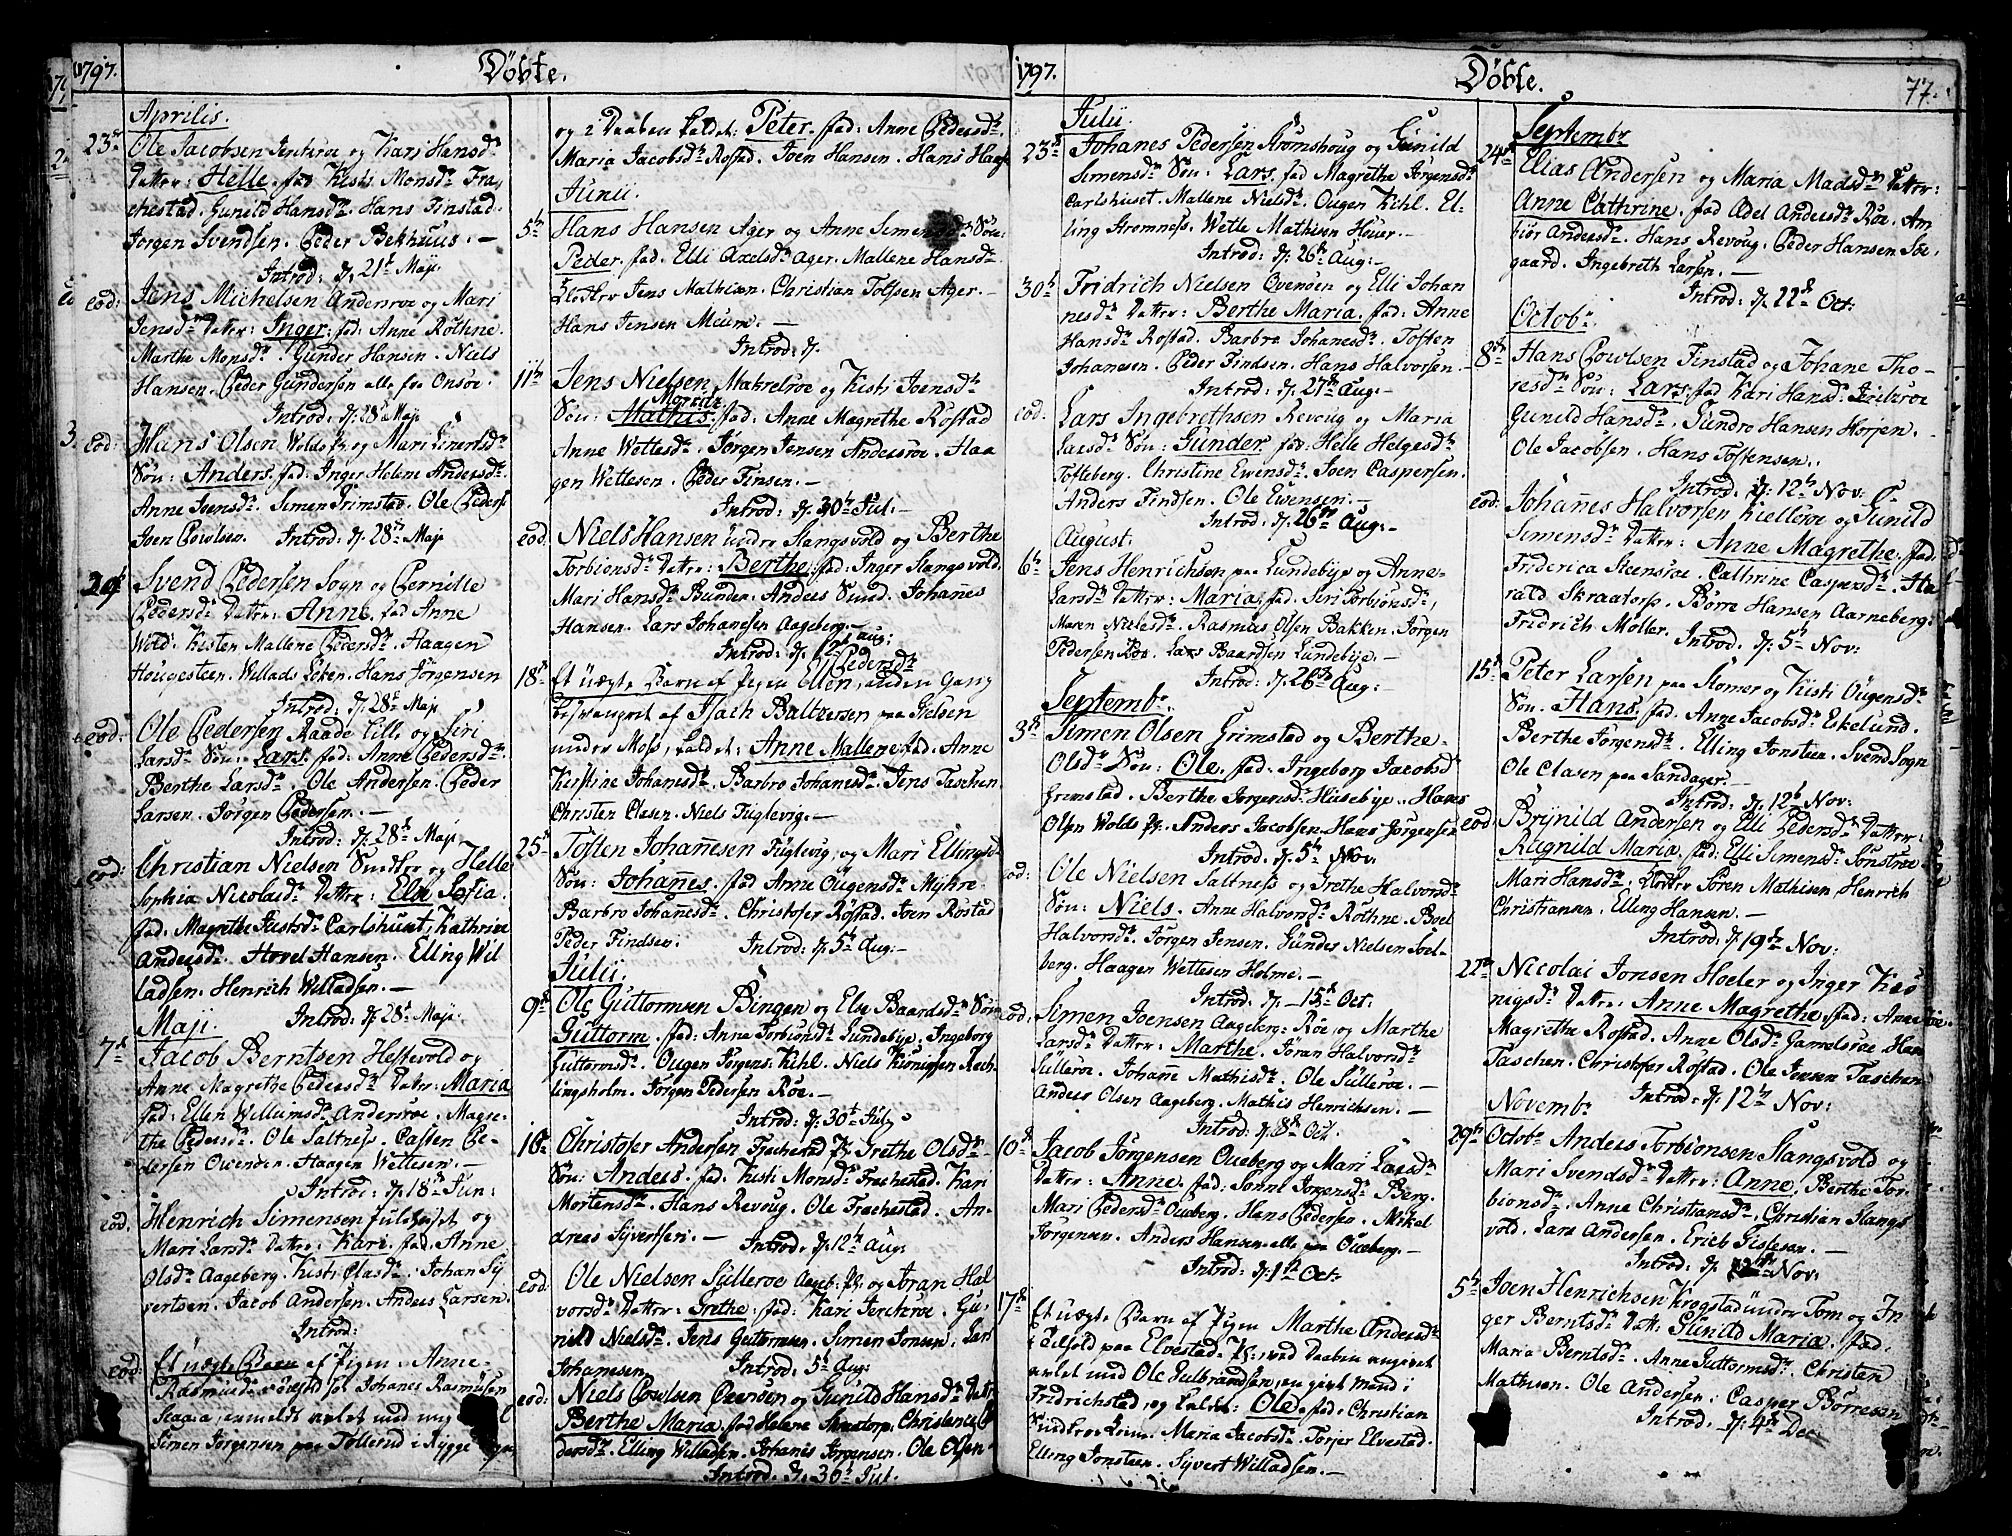 1797.
Döbte.
Aprilis.
23de Ole Jacobsen Jerchroe og Kari Hansdr
Datter: Helle. fad: Kisti Monsdr Fra-
chestad. Gunild Hansdr. Hans Finstad.
Jörgen Svendsen. Peder Bekhuus. —
Introd: d. 21de Maji.
eod: Jens Michelsen Andersroe og Mari
Jensdr Datter: Inger. fad: Anne Rothne.
Marthe Monsdr. Gunder Hansen. Niels
Hansen. Peder Gundersen alle fra Onsöe.
Introd: d. 28de Maji
eod: Hans Olsen Wolds og Mari Einertsdr
Sön: Anders. fad: Inger Helene Andersdr.
Anne Joensdr. Simen Grimstad. Ole Peders
Joen Povelsen. Introd: d. 28de Maji
Svend Pedersen Sogn og Pernille
Pedersdr Datter: Anne. fad: Anne
Wold. Kisten Mallene Pedersdr. Haagen
Hougesteen. Willads Leken. Hans Jörgensen
Introd: d. 28de Maji
eod: Ole Pedersen Raade Lille og Siri
Larsdr Sön: Lars. fad: Anne Pedersdr.
Berthe Larsdr. Ole Andersen. Peder
Larsen. Jörgen Pedersen. —
Introd: d. 28de Maji
eod: Christian Nielsen Smither og Helle
Sophia Nicolaidr Datter: Else Sofia.
fad: Magrethe Justsdr Carlshuset, Kathrine
Andersdr. Hovel Hansen. Elling Wil
ladsen. Henrich Willadsen. —
Introd: d. 28de Maji.
Maji.
7de Jacob Berntsen Hestevold og
Anne Magrethe Pedersdr Datter: Maria
fad: Ellen Willumsdr Andersroe. Magre-
the Pedersdr. Ole Saltness. Casten Pe-
dersen Ovenöen. Haagen Wettesen. —
Introd: d. 18de Jun:
eod. Henrich Simensen Julehuset og
Mari Larsdr Datter: Kari. fad: Anne
Olsdr Aageberg. Kisti Olasdr. Johan Sy
vertsen. Jacob Andersen. Anders Larsen.
Introd:
eod: Et uægte Barn af Pigen Anne
Rasmusdr Johanes Rasmusen
Skaaria, anmeldt avlet med
Simen Jörgensen paa Tollerud i Rygge
og i Daaben kaldet: Peter. fad: Anne Pedersdr.
Maria Jacobsdr Rostad. Joen Hansen. Hans
Junii.
5te Hans Hansen Ager og Anne Simensdr Sön:
Peder. fad: Elli Axelsdr Ager. Mallene Hansdr
Klokker Jens Mathisen. Christian Tolfsen Ager. —
Hans Jensen Meum. —
Introd: d.
11te Jens Nielsen Makrelroe og Kisti Joensdr
Sön: Mathis Moritz. fad: Anne Magrethe Rostad
Anne Wettesdr. Jörgen Jensen Andersroe. Haa
gen Wettesen. Peder Finsen. —
Introd: d. 30te Jul: —
eod. Niels Hansen under Slangsvold og Berthe
Torbionsdr Datter: Berthe. fad: Inger Slangsvold.
Mari Hansdr Bunden. Anders Sund. Johanes
Hansen. Lars Johanesen Aageberg. —
Introd: d. 12te Aug:
18de Et uægte Barn af Pigen Ellen Pedersdr, anden Gang
besvangret af Isach Baltzersen paa Gielsen
under Moss, kaldet: Anne Mallene. fad: Anne
Kirstine Johanesdr. Barbro Johanesdr. Jens Taschen.
Christen Clasen. Niels Fuglevig. —
25de Tosten Johannesen Fuglevig, og Mari Ellingsdr
Sön: Johannes. fad: Anne Ougensdr Myhre.
Barbro Johannesdr. Christofer Rostad. Joen Rostad
Peder Findsen. Introd: d. 5te Aug: —
Julii.
9de Ole Guttormsen Bingen og Else Baardsdr Sön
Guttorm. fad: Anne Torbionsdr Lundebye. Ingeborg
Guttormsdr. Ougen Jörgens. Kihl. Niels
lingsholm. Jörgen Pedersen Roe. —
Introd: d. 30te July
16de Christofer Andersen Frachestad og Grethe Olsdr
Sön: Anders. fad: Kisti Monsdr Frachestad. Kari
Mortensdr. Hans Revoug. Ole Frachestad. An-
dreas Syvertsen. —
Introd. d. 12te Aug:
eod: Ole Nielsen Sulleroe og Joran Hal
vorsdr Datter: Grethe. fad: Kari Jerchroe. Gu-
nild Nielsdr. Jens Guttormsen. Simen Jonsen. Lars
Johannesen. Introd: 5te Aug:
eod: Niels Povelsen Ovenöen og Gunild Hansdr Dattr
Berthe Maria. fad: Helene Christence
dersdr. Elling Willadsen. Johanes Jörgensen. Ole Olsen
Introd. d. 30te Jul.
1797.
Döbte.
77.
Julii
23de Johanes Pedersen Stromshoug og Gunild
Simensdr Sön: Lars. fad: Magrethe Jörgensdr
Carlshuset. Mallene Nielsdr. Ougen Kihl. El-
ling Stromness. Wetle Mathisen Huser. —
Introd: d: 26de Aug: —
30te Fridrich Nielsen Ovenöen og Elli Johan
nesdr Datter: Berthe Maria. fad: Anne
Hansdr Rostad. Barbro Johanesdr. Tosten
Johanesen. Peder Findsen. Hans Halvorsen. —
Introd: d: 27de Aug: —
eod: Lars Ingebrethsen Revoug og Maria
Larsdr Sön: Gunder. fad: Helle Helgesdr
Tofteberg. Christine Ewensdr. Joen Caspersen.
Anders Findsen. Ole Ewensen. —
Introd: d: 26de Aug: —
August.
6te Jens Henrichsen paa Lundebye og Anne
Larsdr Datter: Maria. fad: Siri Torbionsdr,
Maren Nielsdr. Rasmus Olsen Bakken. Jörgen
Pedersen Roe. Lars Baardsen Lundebye. —
Introd: d: 26de Aug: —
Septembr.
3de Simen Olsen Grimstad og Berthe
Olsdr Sön: Ole. fad: Ingeborg Jacobsdr
Grimstad. Berthe Jörgensdr Husebye. Hans
Olsen Wolds. Anders Jacobsen. Hans Jörgensen
Introd: d: 5te Nov:
eod: Ole Nielsen Saltness og Grethe Halvorsdr
Sön: Niels. Anne Halvorsdr Rothne. Boel
Halvorsdr. Jörgen Jensen. Gunder Nielsen Soel-
berg. Haagen Wettesen Holme. —
Introd: d. 15de Oct:
eod: Simen Joensen Aageberg: Roe, og Marthe
Larsdr Datter: Marthe. Joran Halvorsdr
Sulleroe. Johanne Mathisdr. Ole Sulleroe. —
Anders Olsen Aageberg. Mathis Henrichsen. —
Introd: d: 8de Oct.
10de Jacob Jörgensen Oueberg og Mari Larsdr
Datter: Anne. fad: Sonni Jorgensdr Berg.
Mari Pedersdr Oueberg. Hans Pedersen. Mikel
Jörgensen. Anders Hansen alle paa Oueberg. —
Introd: d: 1ste Oct:
17de Et uægte Barn af Pigen Marthe Andersdr
tilhold paa Elvestad, ved Daaben angivet
avlet med Ole Gulbrandsen, en givt Mand i
Fridrichstad, og kaldet: Ole. fad: Christian
Maria Jacobsdr. Torjer Elvestad.
Elling Jonsteen. Syvert Willadsen. —
Septembr
24de Elias Andersen og Maria Madsdr Datter:
Anne Cathrine. fad: Adel Andersdr Roe. An
biör Andersdr. Hans Revoug. Peder Hansen Söe
gaard. Ingebreth Larsen. —
Introd: d. 22de Oct:
Octobr.
8de Hans Povelsen Finstad og Johane Tho-
resdr Sön: Lars. fad: Kari Hansdr
Gunild Hansdr. Gundro Hansen Horjen.
Ole Jacobsen. Hans Tostensen.
Introd. d: 12te Nov:
eod. Johannes Halvorsen Kielleroe og Gunild
Simensdr Datter: Anne Magrethe. fad:
Friderica Steensroe. Cathrine Caspersdr. Ha
rald Skraatorp. Börre Hansen Aarneberg.
Fridrich Moller. Introd: d: 5te Nov:
15de Peter Larsen paa Stomer og Kisti Ougensdr
Sön. Hans. fad: Anne Jacobsdr Eskelund.
Berthe Jörgensdr. Elling Jonsteen. Svend Sogn
Ole Clasen paa Sandager. —
Introd: d. 12te Nov:
eod: Brynild Andersen og Elli Pedersdr Datter:
Ragnild Maria. fad: Elli Simensdr
Mari Hansdr. Klokker Sören Mathisen. Henrich
Christiansen. Elling Hansen. —
Introd: d. 19de Nov:
22de Nicolai Jonsen Hoeler og Inger Kiö
nigsdr Datter: Anne Magrethe. fad: Anne
Magrethe Rostad. Anne Olsdr Gamelsroe. Hans
Taschen. Christofer Rostad. Ole Jensen Taschen
Introd: d: 12te Nov:
Novembr
29de Octobr Anders Torbionsen Slangsvold og
Mari Svendsdr Datter: Anne. Berthe Tor-
bionsdr. Anne Christiansdr. Christian Slangs
vold. Lars Andersen. Erich Gislesen. —
Introd: d. Nov:
5te Joen Henrichsen Krogstad under Tom og In
ger Berntsdr Datt: Gunild Maria. fad.
Maria Berntsdr. Anne Guttormsdr. Christen
Mathisen. Ole Andersen. Casper Börresen
Introd. d: 4de Dec: